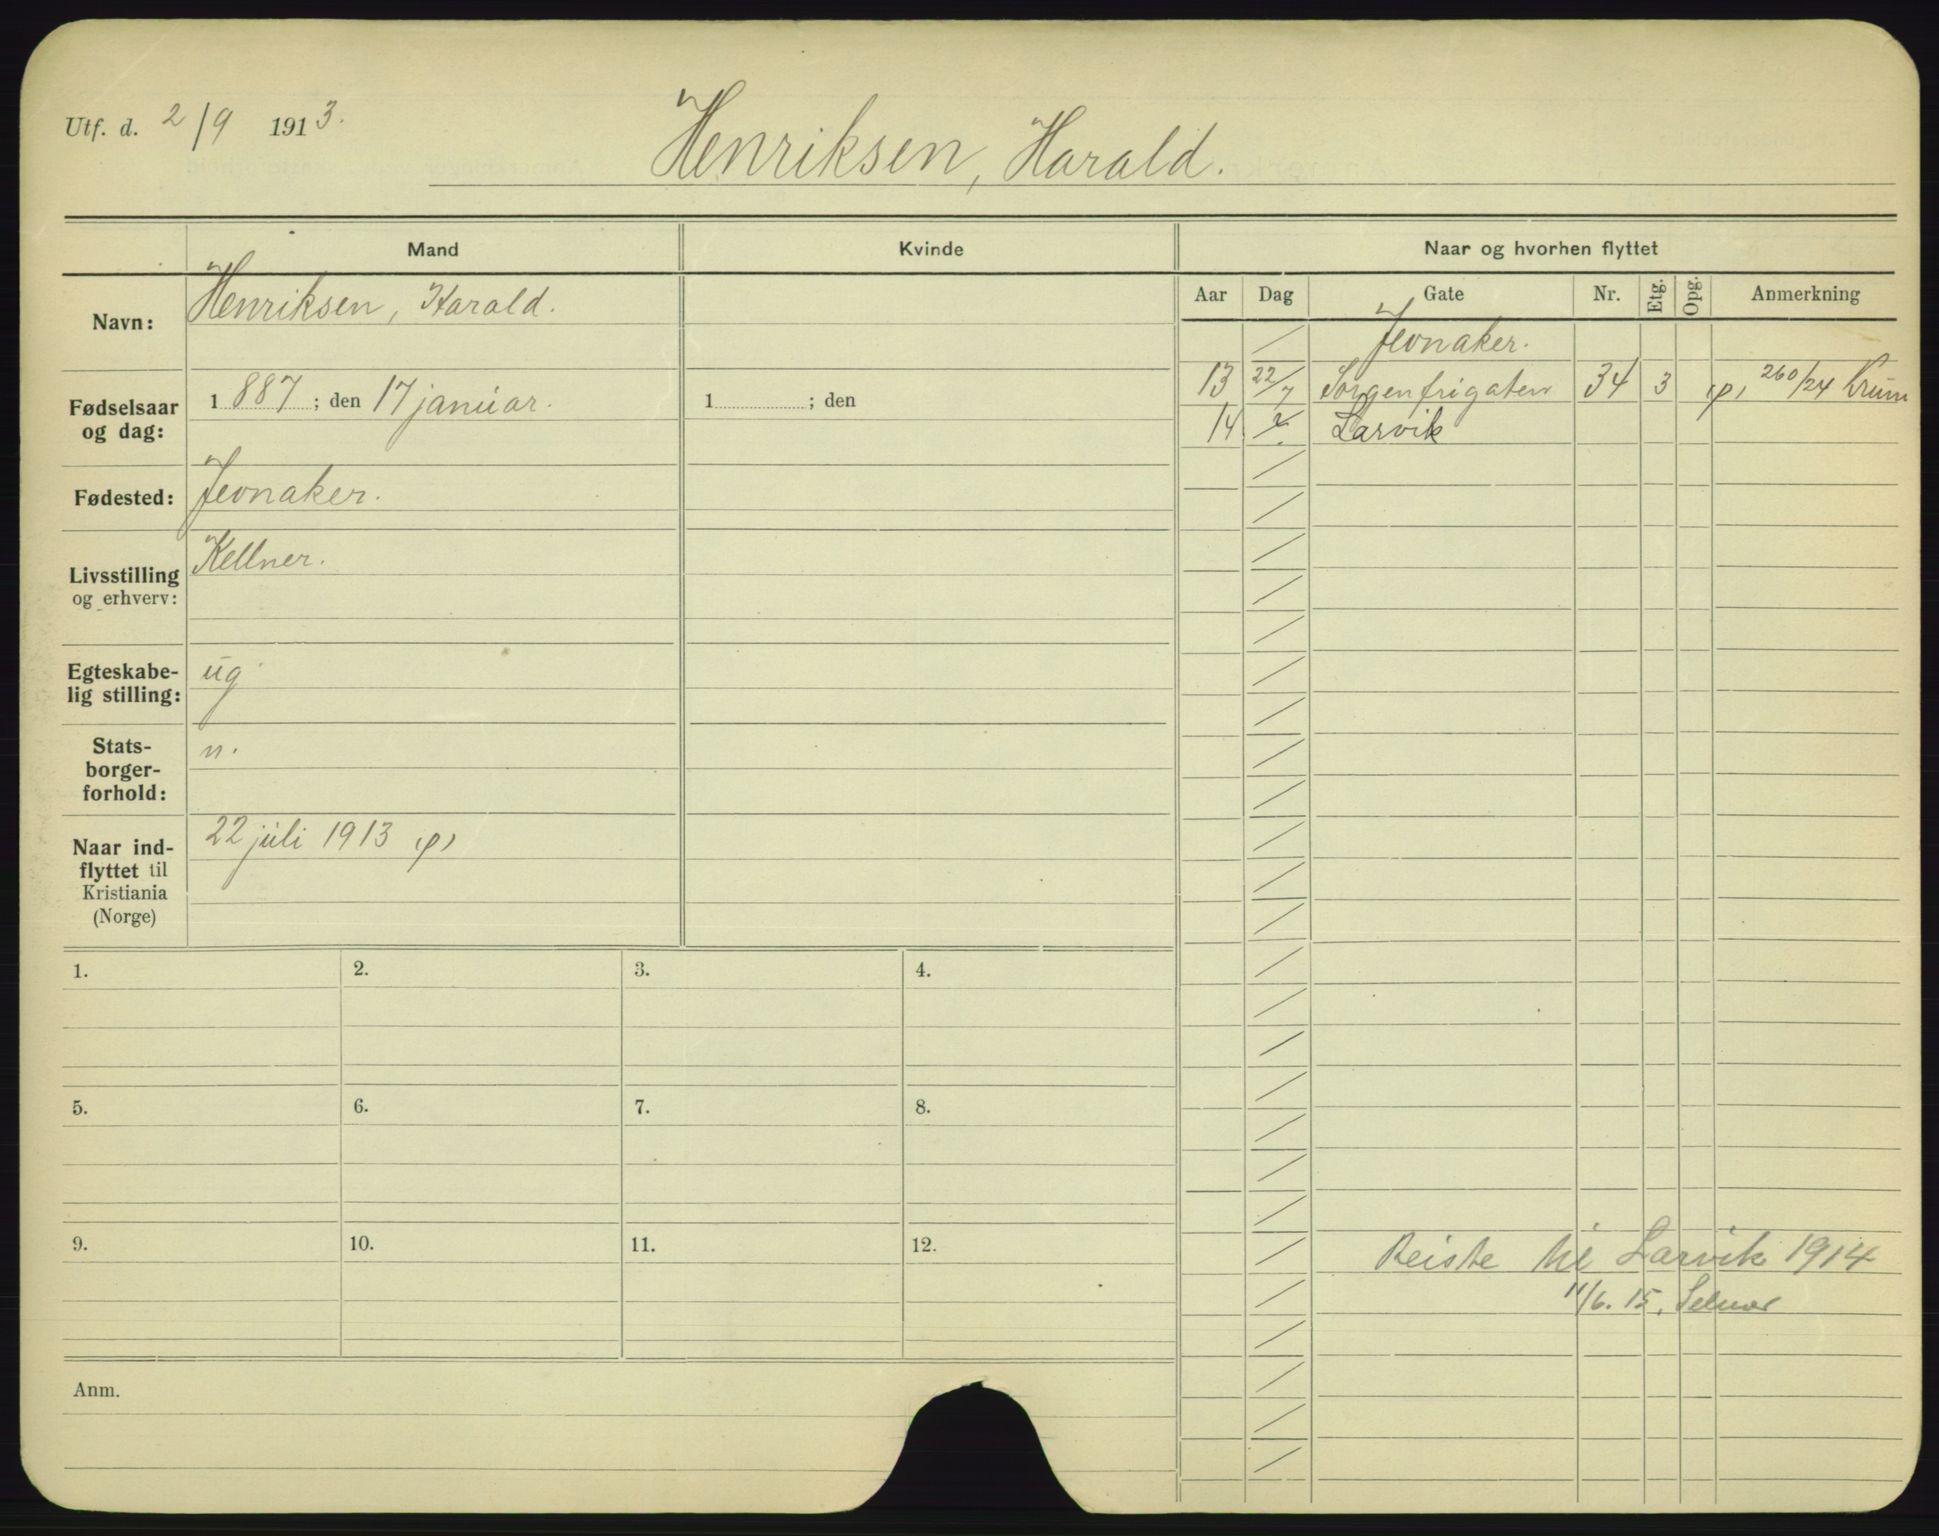 Utf. d. 2/9 1913.
Henriksen, Harald.
Mand
Kvinde
Naar og hvorhen flyttet
Navn:
Henriksen, Harald.
Fødselsaar og dag:
1887; den 17 januar.
1 ; den
Fødested:
Jevnaker.
Livsstilling og erhverv:
Kellner.
Egteskabe-
lig stilling:
ug
Stats-
borger-
forhold:
n.
Naar ind-
flyttet til
Kristiania
(Norge)
22 juli 1913 (p)
Aar Dag Gate Nr. Etg. Opg. Anmerkning
Jevnaker.
13 22/7 Sorgenfrigaten 34 3 (p) 260/24 Krim
14 Larvik
1. 2. 3. 4.
5. 6. 7. 8.
9. 10. 11. 12.
Reiste til Larvik 1914
11/6. 15.
Anm.